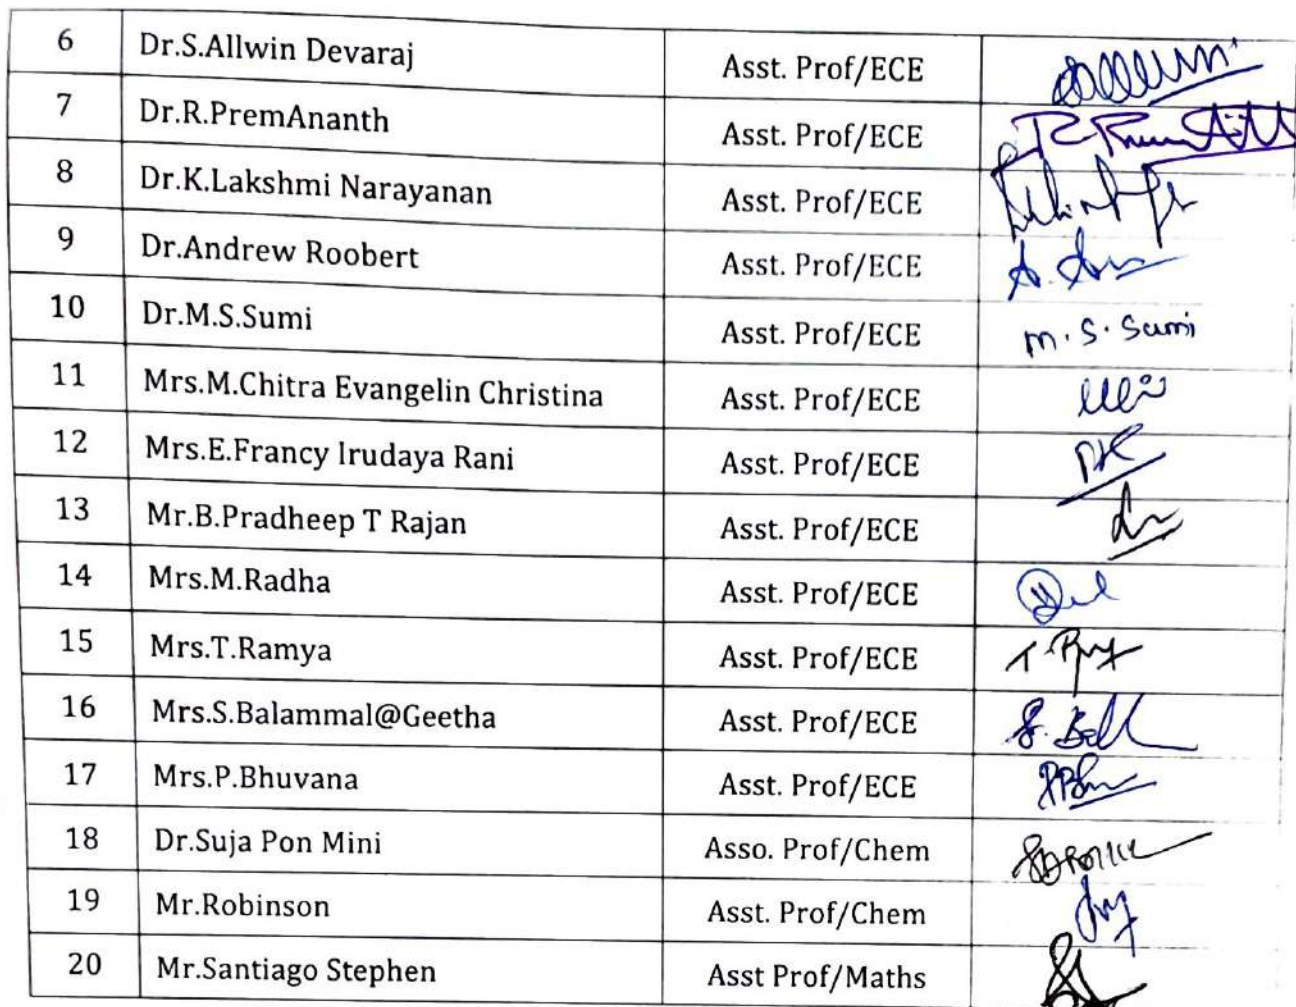 6 Dr.S.Allwin Devaraj Asst. Prof/ECE
7 Dr.R.PremAnanth Asst. Prof/ECE
8 Dr.K.Lakshmi Narayanan Asst. Prof/ECE
9 Dr.Andrew Roobert Asst. Prof/ECE
10 Dr.M.S.Sumi Asst. Prof/ECE M.S.Sumi
11 Mrs.M.Chitra Evangelin Christina Asst. Prof/ECE
12 Mrs.E.Francy Irudaya Rani Asst. Prof/ECE
13 Mr.B.Pradheep T Rajan Asst. Prof/ECE
14 Mrs.M.Radha Asst. Prof/ECE
15 Mrs.T.Ramya Asst. Prof/ECE
16 Mrs.S.Balammal@Geetha Asst. Prof/ECE
17 Mrs.P.Bhuvana Asst. Prof/ECE
18 Dr.Suja Pon Mini Asso. Prof/Chem
19 Mr.Robinson Asst. Prof/Chem
20 Mr.Santiago Stephen Asst Prof/Maths